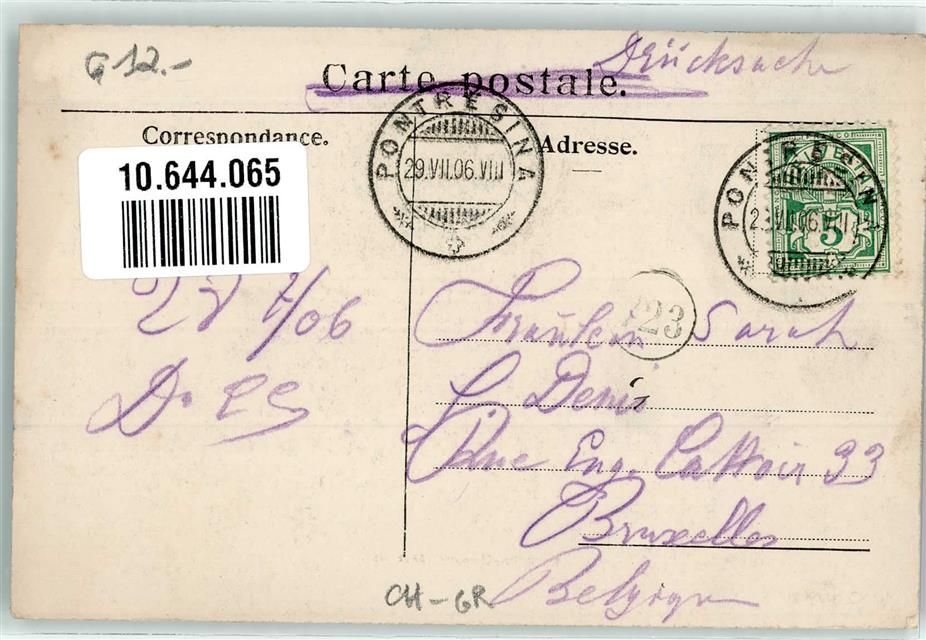 G 12.-
Drucksache
Carte postale.
Correspondance.
Adresse.
10.644.065
PONTRESINA
29.VII.06.VIII
PONTRESINA
5
123
28 7/06
Fräulein Sarah
Denis
Rue Eng. Cattoir 33
Bruxelles
Belgique
CH-GR